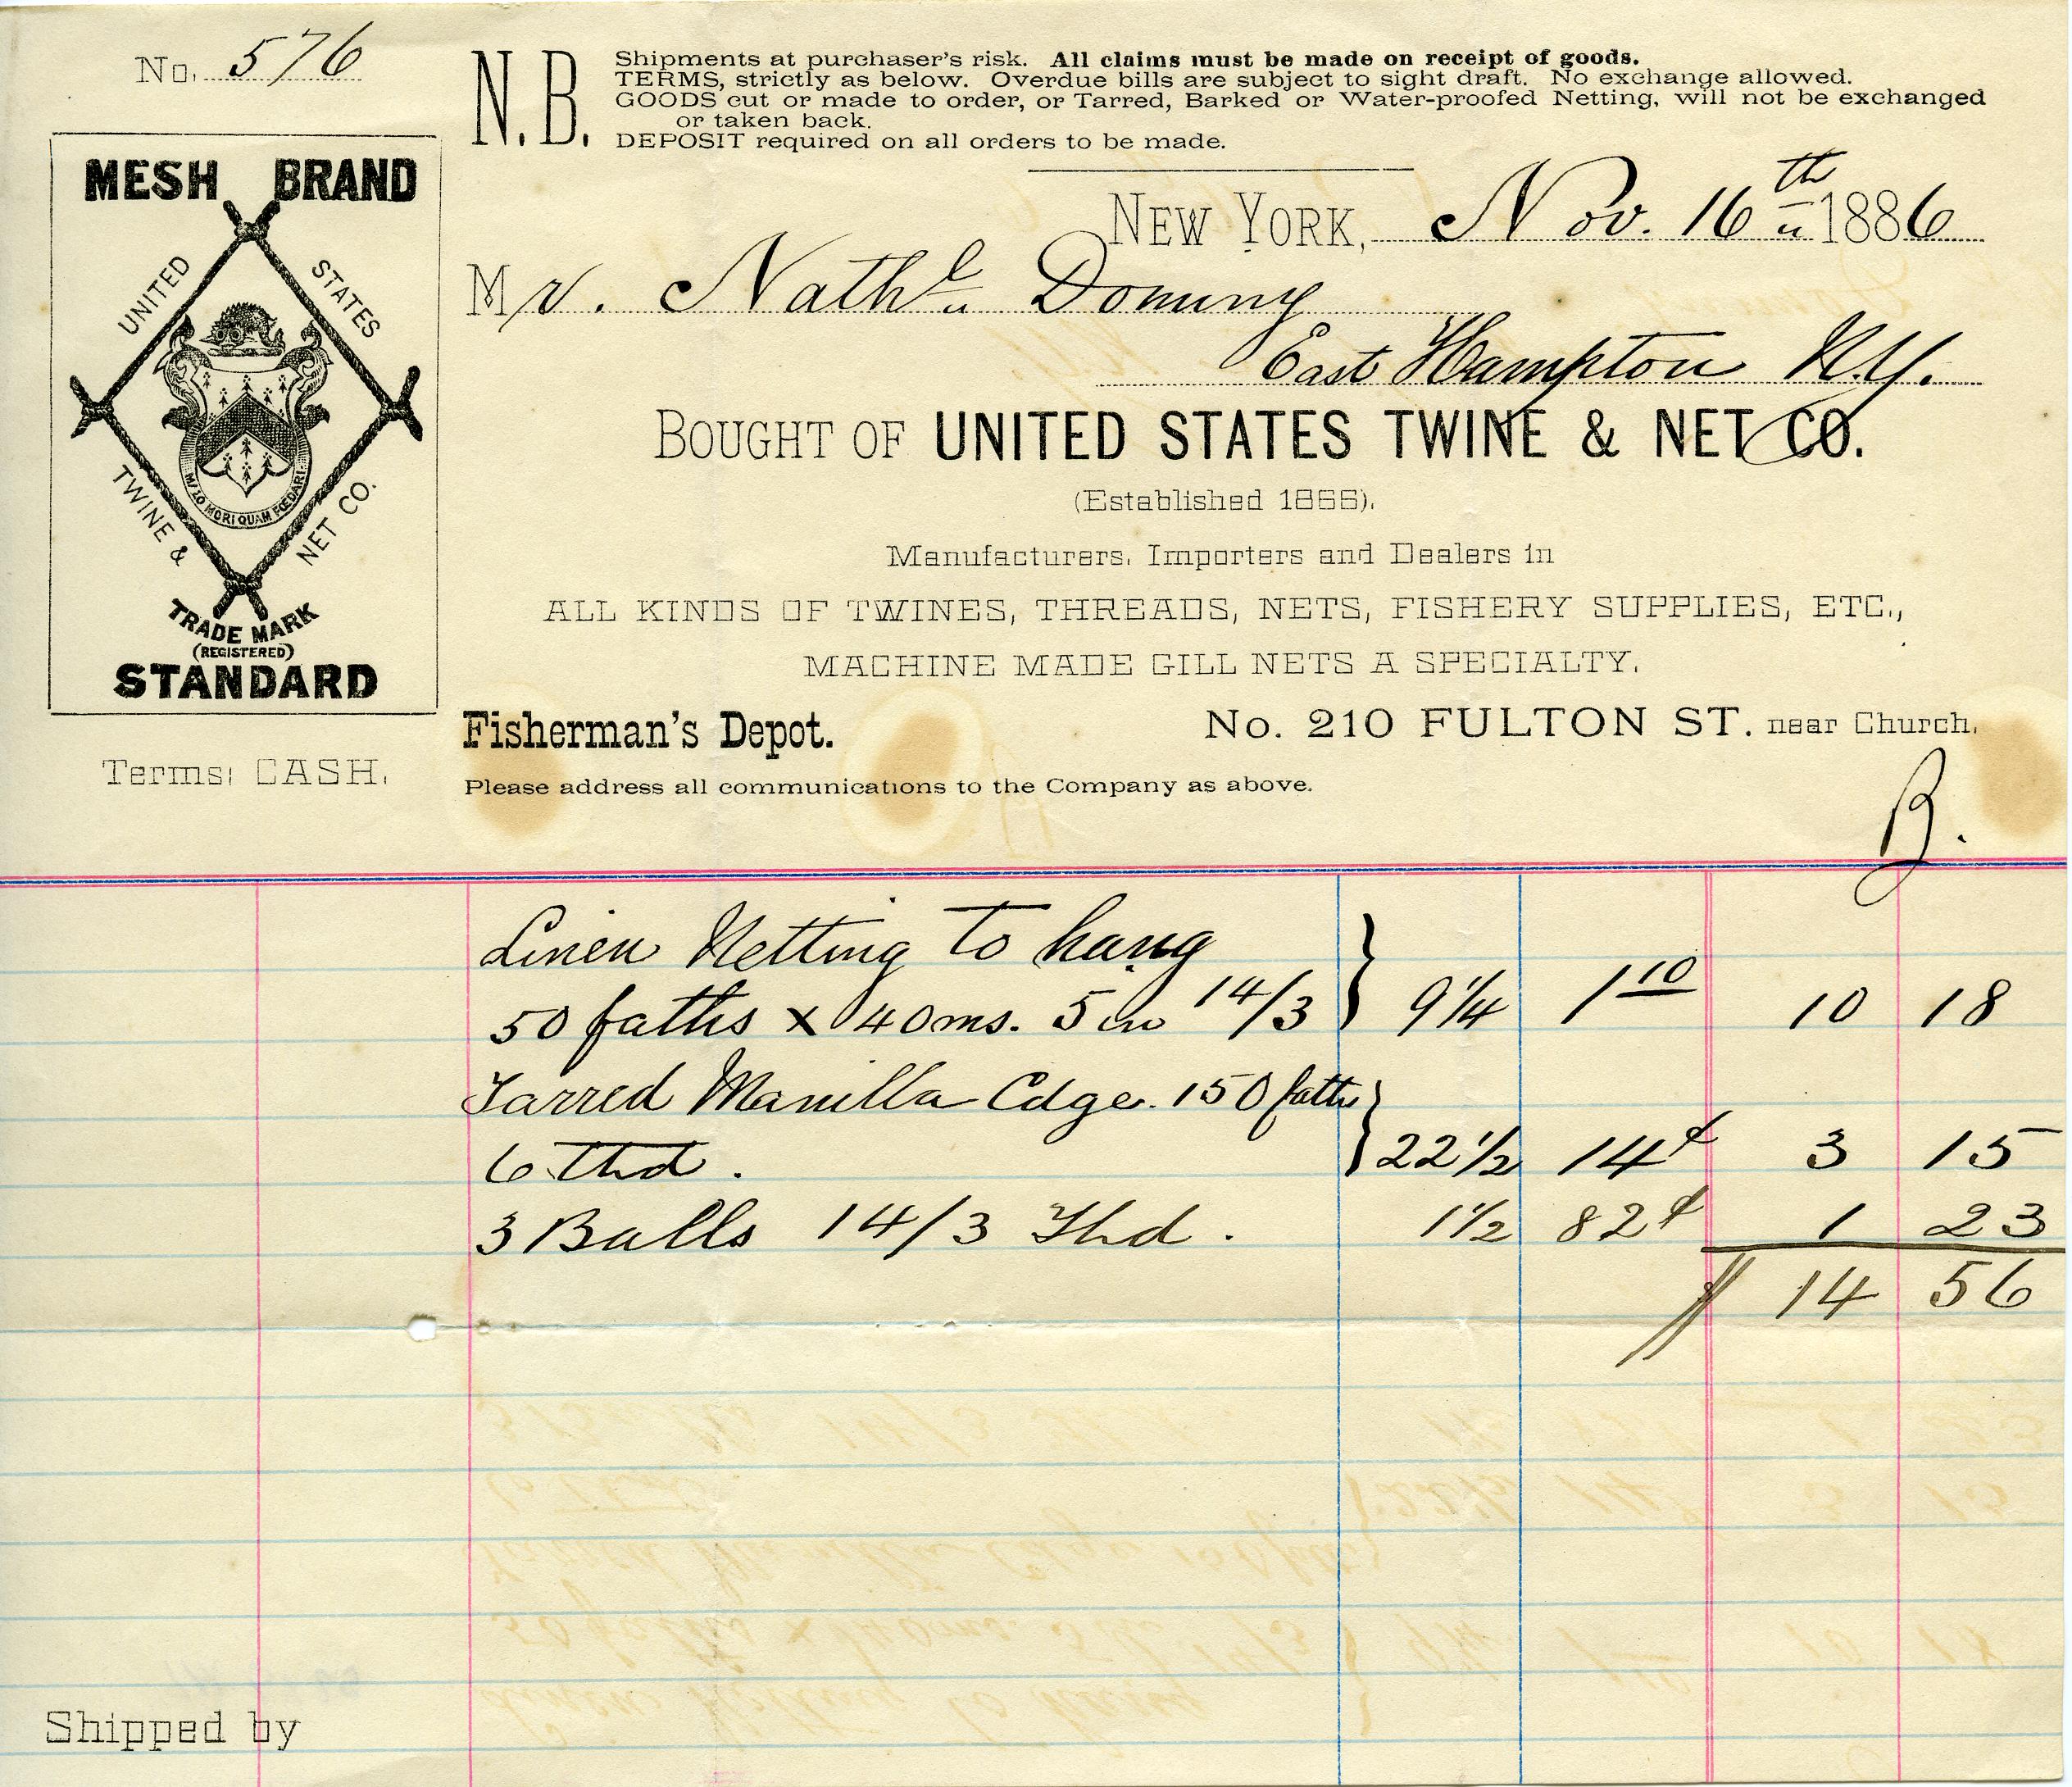 No. 576
N.B. Shipments at purchaser's risk. All claims must be made on receipt of goods.
TERMS, strictly as below. Overdue bills are subject to sight draft. No exchange allowed.
GOODS cut or made to order, or Tarred, Barked or Water-proofed Netting, will not be exchanged
or taken back.
DEPOSIT required on all orders to be made.
MESH BRAND
UNITED STATES
TWINE & NET CO.
MALO MORI QUAM FŒDARI
TRADE MARK
(REGISTERED)
STANDARD
NEW YORK, Nov. 16th 1886
Mr. Nathl Dominy
East Hampton N.Y.
BOUGHT OF UNITED STATES TWINE & NET CO.
(Established 1866).
Manufacturers, Importers and Dealers in
ALL KINDS OF TWINES, THREADS, NETS, FISHERY SUPPLIES, ETC.,
MACHINE MADE GILL NETS A SPECIALTY.
Fisherman's Depot. No. 210 FULTON ST. near Church.
Terms: CASH.
Please address all communications to the Company as above.
B.
Linen Netting to hang
50 faths x 40 ms. 5 in 14/3 } 9 1/4 1 10 10 18
Tarred Manilla Cdge. 150 faths
6 thd. } 22 1/2 14¢ 3 15
3 Balls 14/3 Thd. 1 1/2 82¢ 1 23
14 56
Shipped by